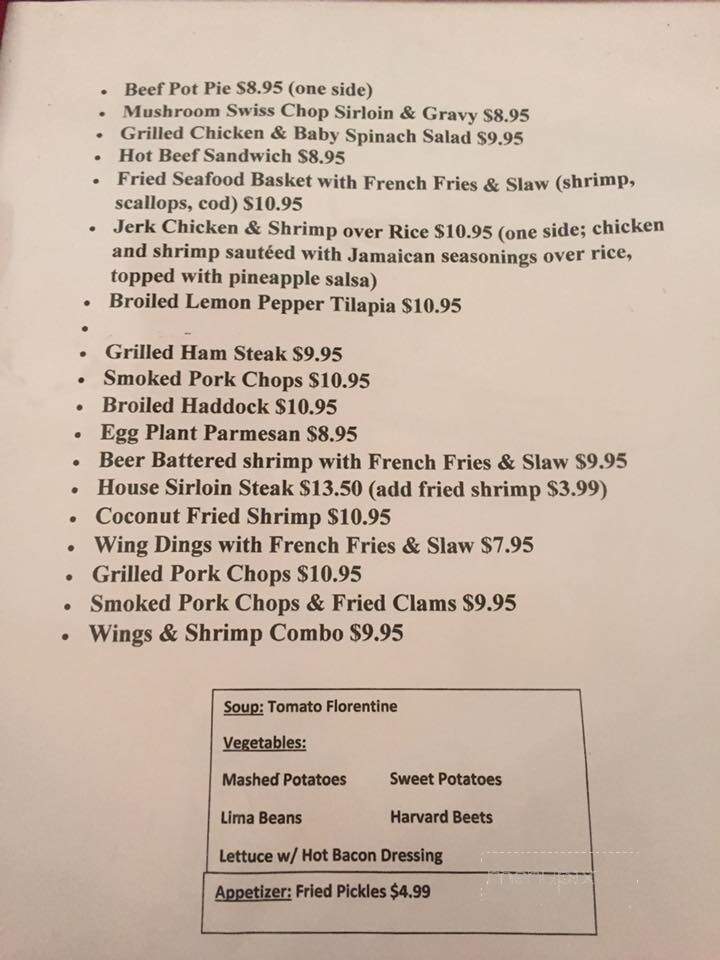 • Beef Pot Pie $8.95 (one side)
• Mushroom Swiss Chop Sirloin & Gravy $8.95
• Grilled Chicken & Baby Spinach Salad $9.95
• Hot Beef Sandwich $8.95
• Fried Seafood Basket with French Fries & Slaw (shrimp,
scallops, cod) $10.95
• Jerk Chicken & Shrimp over Rice $10.95 (one side; chicken
and shrimp sautéed with Jamaican seasonings over rice,
topped with pineapple salsa)
• Broiled Lemon Pepper Tilapia $10.95
•
• Grilled Ham Steak $9.95
• Smoked Pork Chops $10.95
• Broiled Haddock $10.95
• Egg Plant Parmesan $8.95
• Beer Battered shrimp with French Fries & Slaw $9.95
• House Sirloin Steak $13.50 (add fried shrimp $3.99)
• Coconut Fried Shrimp $10.95
• Wing Dings with French Fries & Slaw $7.95
• Grilled Pork Chops $10.95
• Smoked Pork Chops & Fried Clams $9.95
• Wings & Shrimp Combo $9.95
Soup: Tomato Florentine
Vegetables:
Mashed Potatoes Sweet Potatoes
Lima Beans Harvard Beets
Lettuce w/ Hot Bacon Dressing
Appetizer: Fried Pickles $4.99